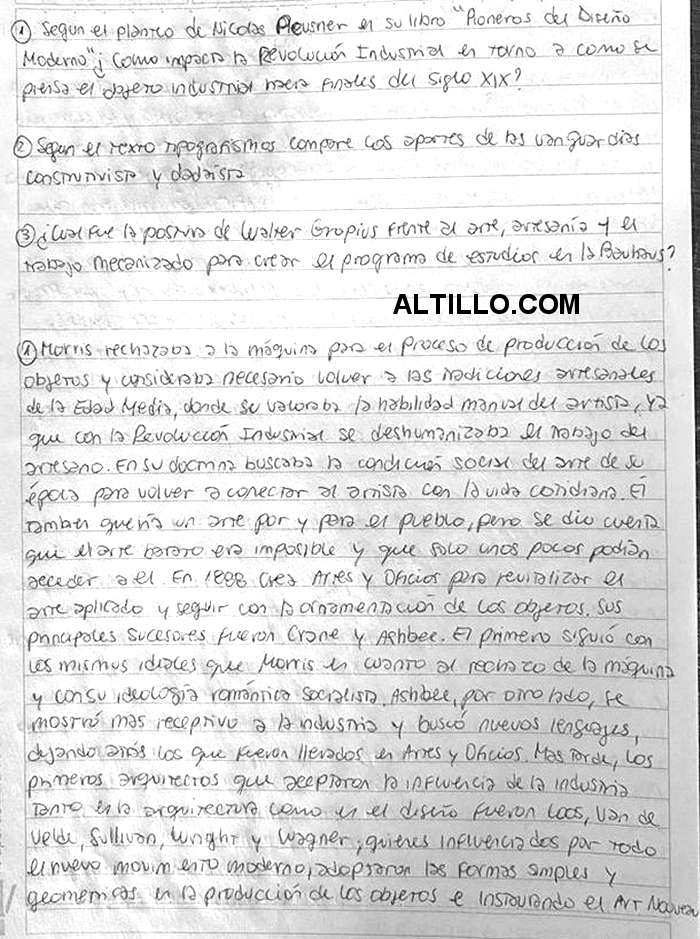 ① Segun el planteo de Nicolas Pevsner en su libro "Pioneros del Diseño
Moderno" ¿Como impacta la Revolución Industrial en torno a como se
piensa el objeto industrial hacia finales del siglo XIX?
② Segun el texto tipografismos compare los aportes de las vanguardias
construtivista y dadaista
③ ¿Cual fue la postura de Walter Gropius frente al arte, artesania y el
trabajo mecanizado para crear el programa de estudios en la Bauhaus?
ALTILLO.COM
① Morris rechazaba a la máquina para el proceso de producción de los
objetos y consideraba necesario volver a las tradiciones artesanales
de la Edad Media, donde se valoraba la habilidad manual del artista, ya
que con la Revolución Industrial se deshumanizaba el trabajo del
artesano. En su doctrina buscaba la condición social del arte de su
época para volver a conectar al artista con la vida cotidiana. El
tambien queria un arte por y para el pueblo, pero se dio cuenta
que el arte barato era imposible y que solo unos pocos podian
acceder a el. En 1888 crea Artes y Oficios para revitalizar el
arte aplicado y seguir con la ornamentación de los objetos. Sus
principales sucesores fueron Crane y Ashbee. El primero siguió con
los mismos ideales que Morris en cuanto al rechazo de la máquina
y con su ideología romántica socialista. Ashbee, por otro lado, se
mostró mas receptivo a la industria y buscó nuevos lenguajes,
dejando atrás los que fueron llevados en Artes y Oficios. Mas tarde, los
primeros arquitectos que aceptaron la influencia de la industria
tanto en la arquitectura como en el diseño fueron Loos, Van de
Velde, Sullivan, Wright y Wagner, quienes influenciados por todo
el nuevo movimiento moderno, adoptaron las formas simples y
geometricas en la producción de los objetos e instaurando el Art Nouveau